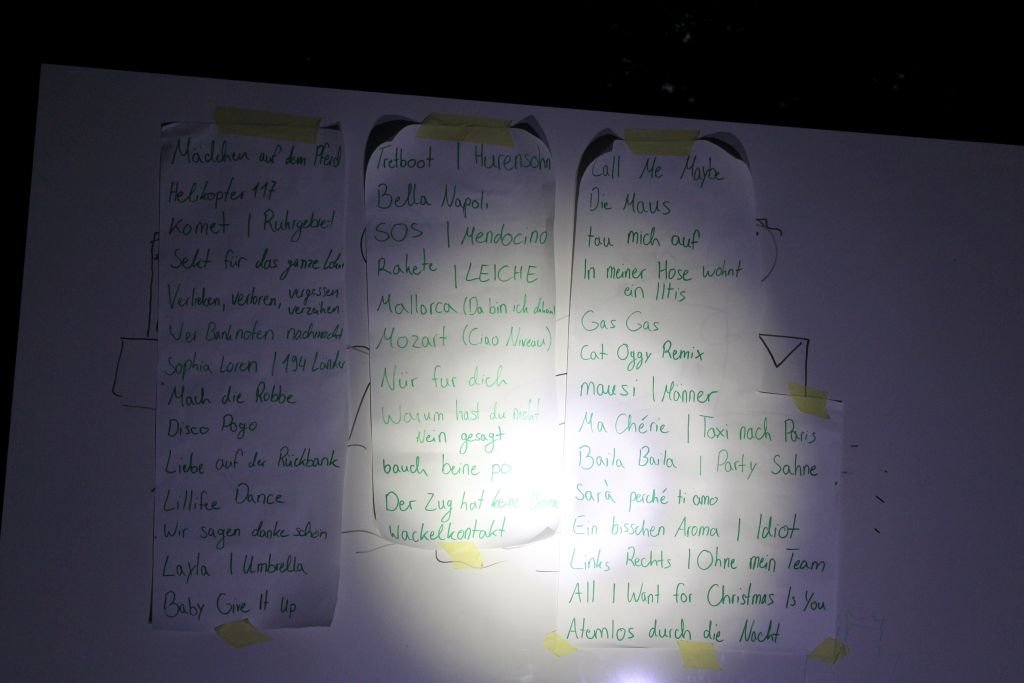 Mädchen auf dem Pferd
Helikopter 117
Komet | Ruhrgebiet
Sekt für das ganze
Verlieben, verloren, vergessen
verzeihen
Wer Banknoten nachmacht
Sophia Loren | 194 Länder
Mach die Robbe
Disco Pogo
Liebe auf der Rückbank
Lillifee Dance
Wir sagen danke schön
Layla | Umbrella
Baby Give It Up
Tretboot | Hurensohn
Bella Napoli
SOS | Mendocino
Rakete | LEICHE
Mallorca (Da bin ich daheim)
Mozart (Ciao Niveau)
Nür für dich
Warum hast du nicht
Nein gesagt
bauch beine po
Der Zug hat keine
Wackelkontakt
Call Me Maybe
Die Maus
tau mich auf
In meiner Hose wohnt
ein Iltis
Gas Gas
Cat Oggy Remix
mausi | Männer
Ma Chérie | Taxi nach Paris
Baila Baila | Party Sahne
Sarà perché ti amo
Ein bisschen Aroma | Idiot
Links Rechts | Ohne mein Team
All I Want for Christmas Is You
Atemlos durch die Nacht